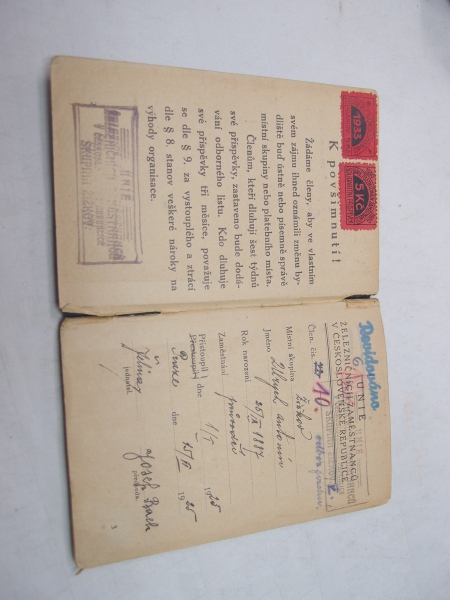 K povšimnutí!
Žádáme členy, aby ve vlastním
svém zájmu ihned oznámili změnu by-
dliště buď ústně nebo písemně správě
místní skupiny nebo platebního místa.
Členům, kteří dluhují šest týdnů
své příspěvky, zastaveno bude dodá-
vání odborného listu. Kdo dluhuje
své příspěvky tři měsíce, považuje
se dle § 9. za vystouplého a ztrácí
dle § 8. stanov veškeré nároky na
výhody organisace.
1933
5 Kč
UNIE
Revidováno
UNIE
ŽELEZNIČNÍCH ZAMĚSTNANCŮ
V ČESKOSLOVENSKÉ REPUBLICE
Člen. čís. 10.
Místní skupina Žižkov
Jméno Antonín
Rok narození 1887
Zaměstnání
Přistoupil dne 1/5 1925
dne 25/ 1925
Josef
předseda
3